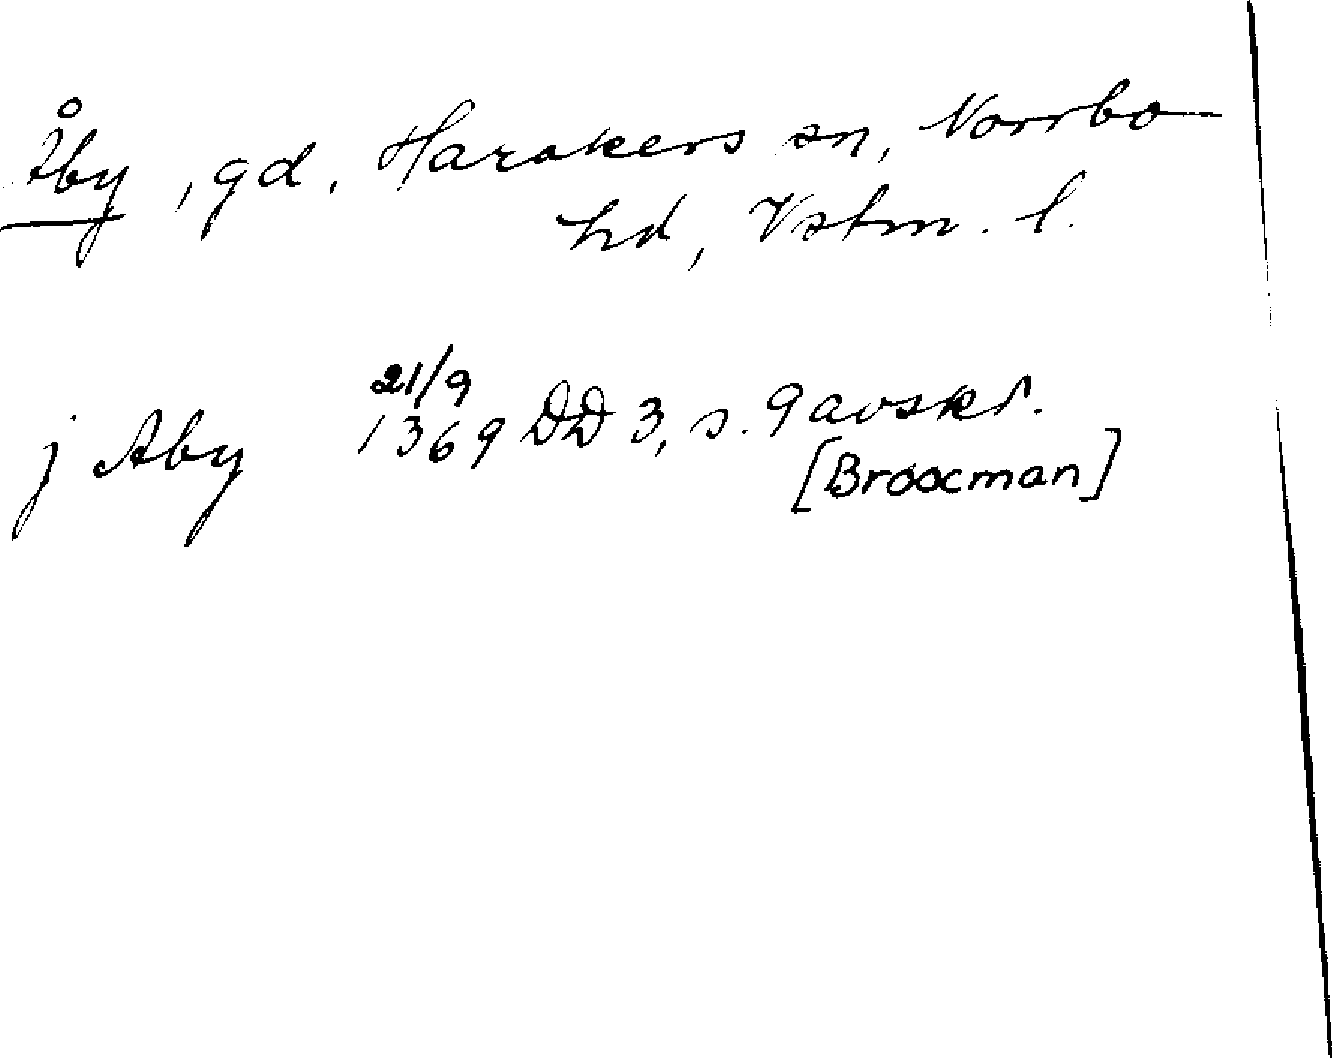 Åby, gd, Harakers sn, Norrbo
hd, Vstm. l.
j Aby 21/9 1369 DD 3, s. 9 avskr.
[Broocman]